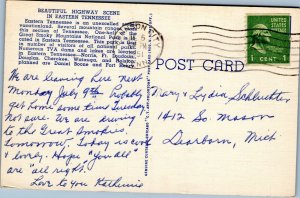 BEAUTIFUL HIGHWAY SCENE
IN EASTERN TENNESSEE
Eastern Tennessee is an unexcelled
vacationland. Several mountain ranges
this section of Tennessee. One-half of
Great Smoky Mountains National Park is
ated in Eastern Tennessee. This part
a number of visitors of all national parks.
Following TVA dams and lakes are located
in Eastern Tennessee: Norris,
Douglas, Cherokee, Watauga, and
planned are Daniel Boone and Fort
1 CENT 1
POST CARD
We are leaving here next
Monday July 9th. Probably
get home some time Tuesday
not sure. We are driving
to the Great Smokies
tomorrow. Today is cool
& lovely. Hope "you all"
are "all right."
Love to you Katherine
Mary & Lydia Schlechter
1412 So. Mason
Dearborn, Mich